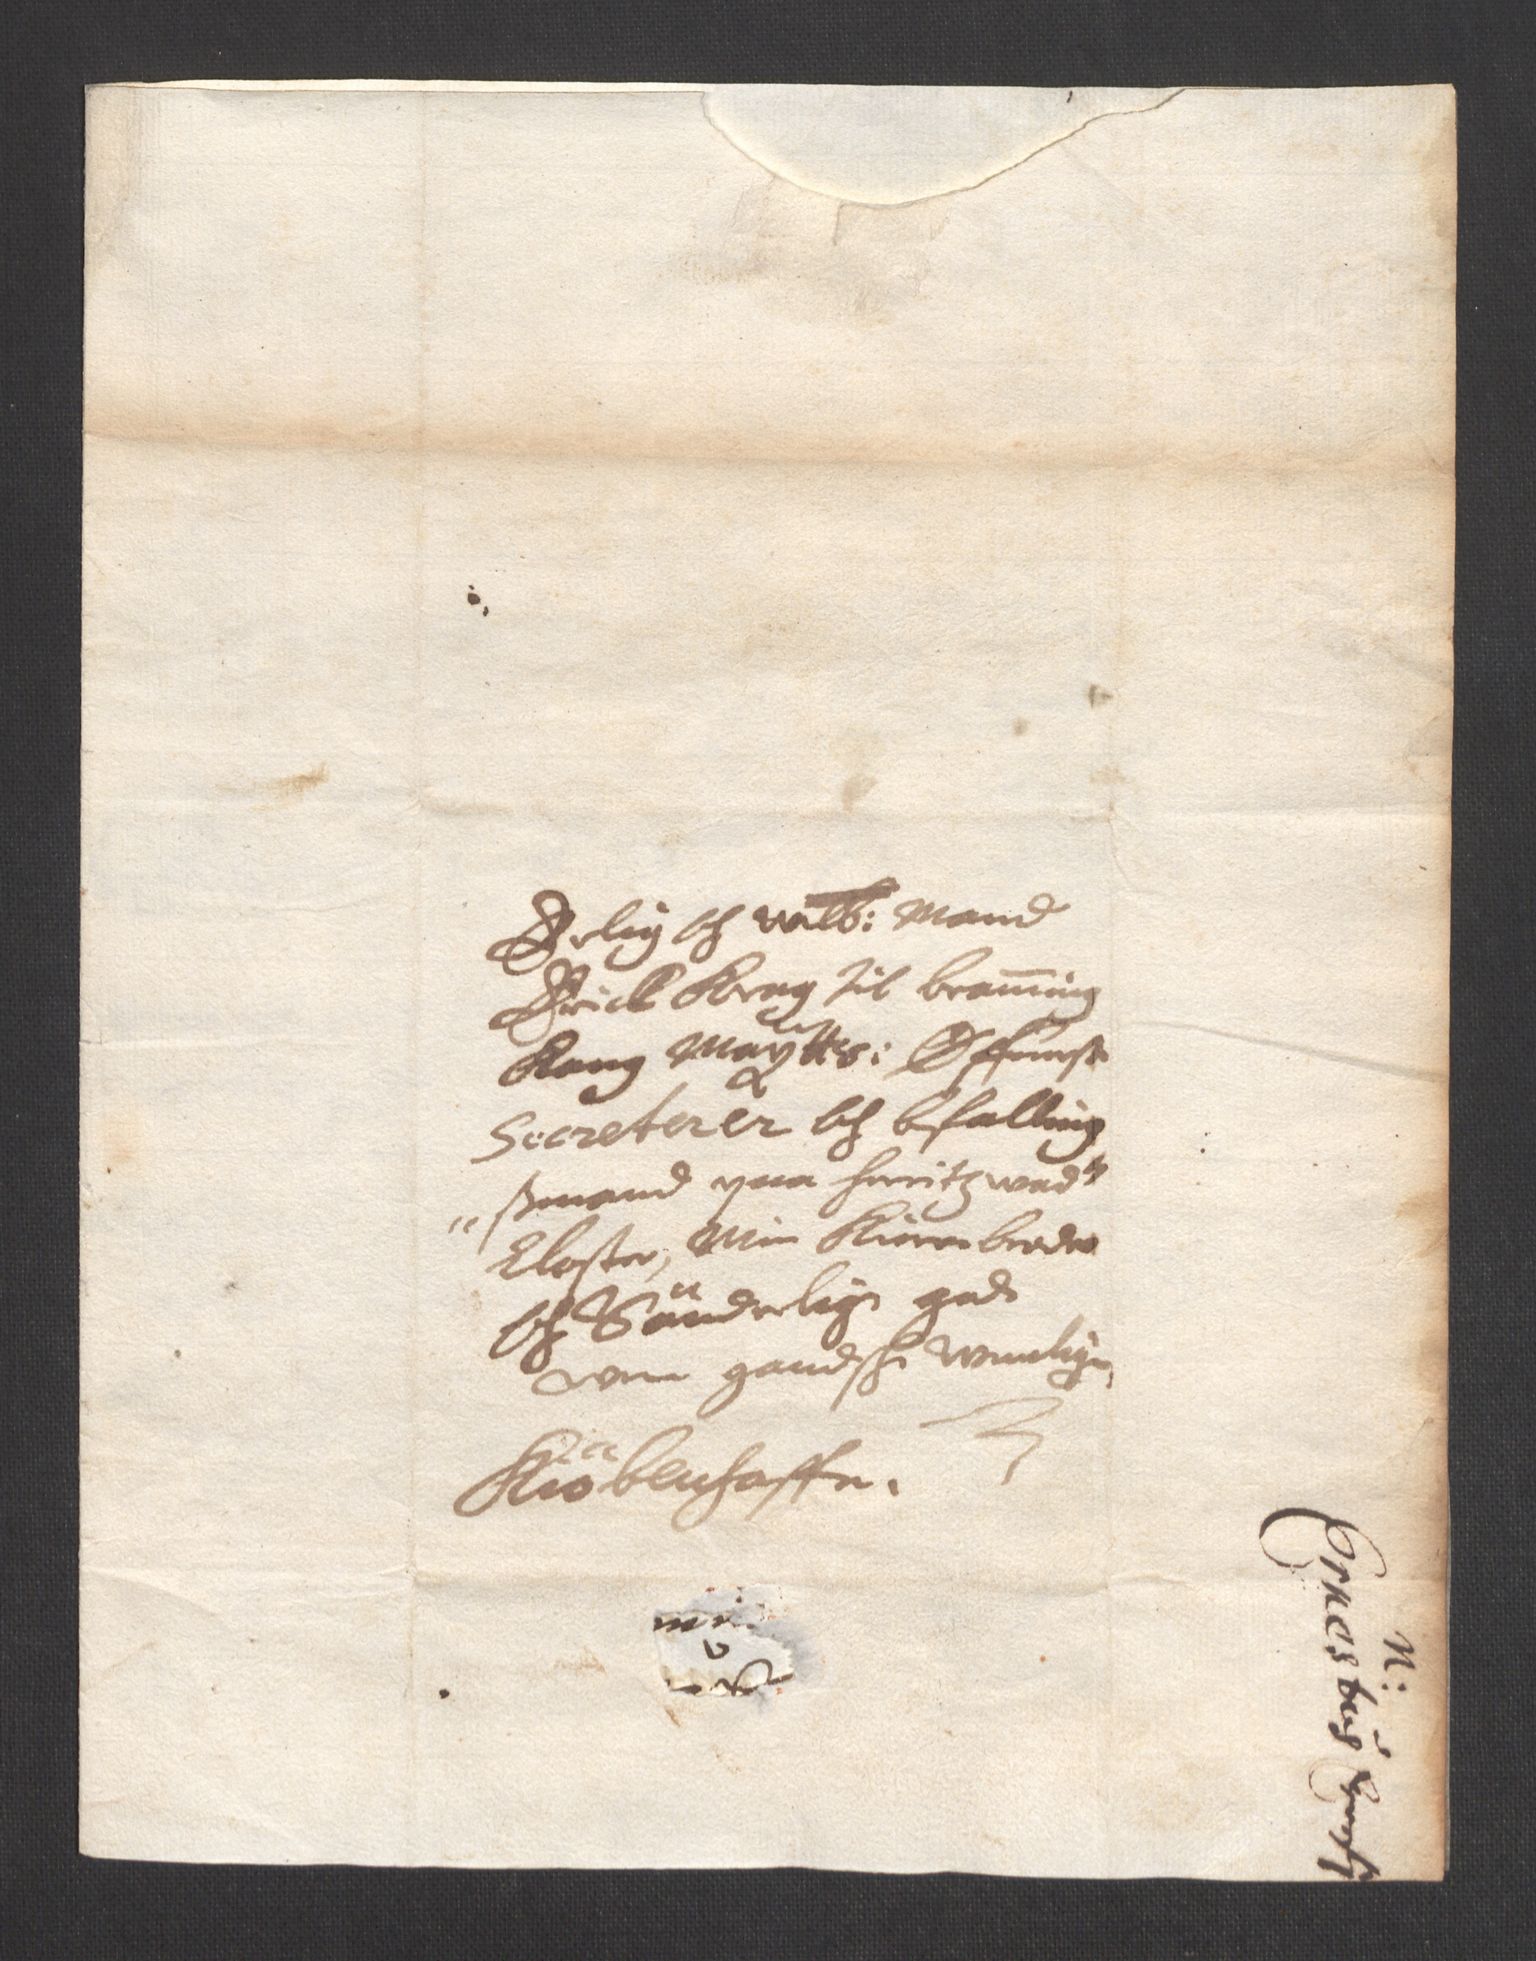 Erlig och welb: Mand
Erick Krag til bramming
Kong Maytts: Öffuerste
Secreterer och befalling
"ssmand paa herritzwads
Closter, Min Kiere broder
och Sönderlig gode
wen gandsche wenlige,
Kiöbenhaffn.
N: